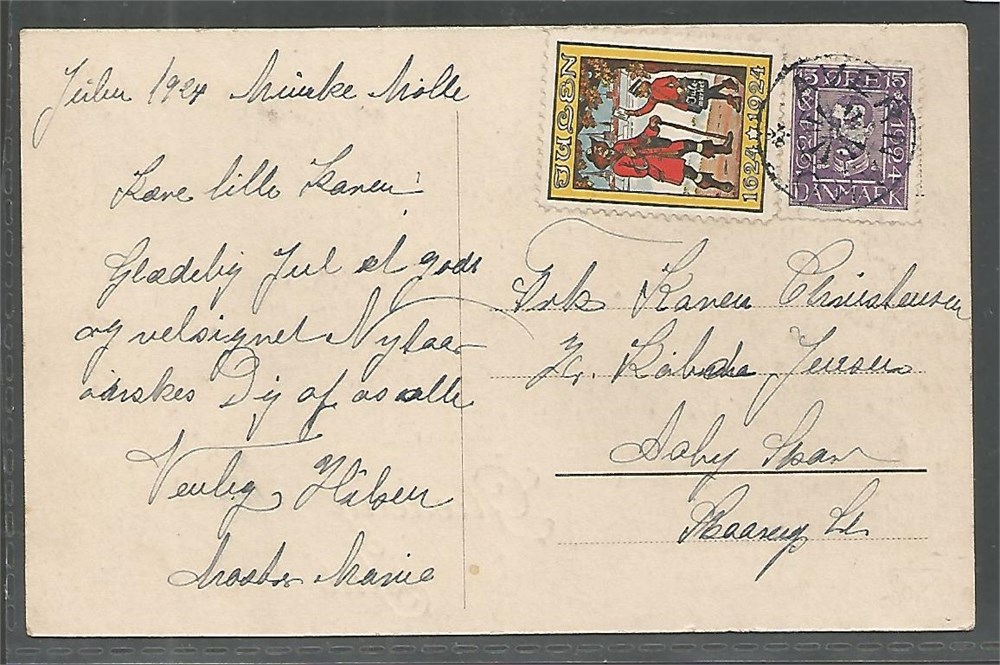 Julen 1924 Munke Mølle
Kære lille Karen!
Glædelig Jul et godt
og velsignet Nytaar
ønskes Dig af os alle
Venlig Hilsen
Moster Marie
JULEN
1624 1924
15 ØRE 15
1624 1924
DANMARK
Frk Karen Christensen
Hr. Købmd. Jensen
Aaby